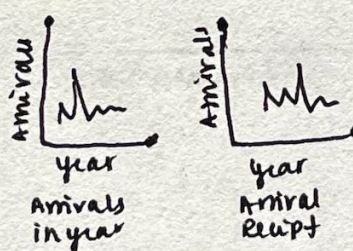 Arrivals
year
Arrivals
in year
Arrivals
year
Arrival
Reciept